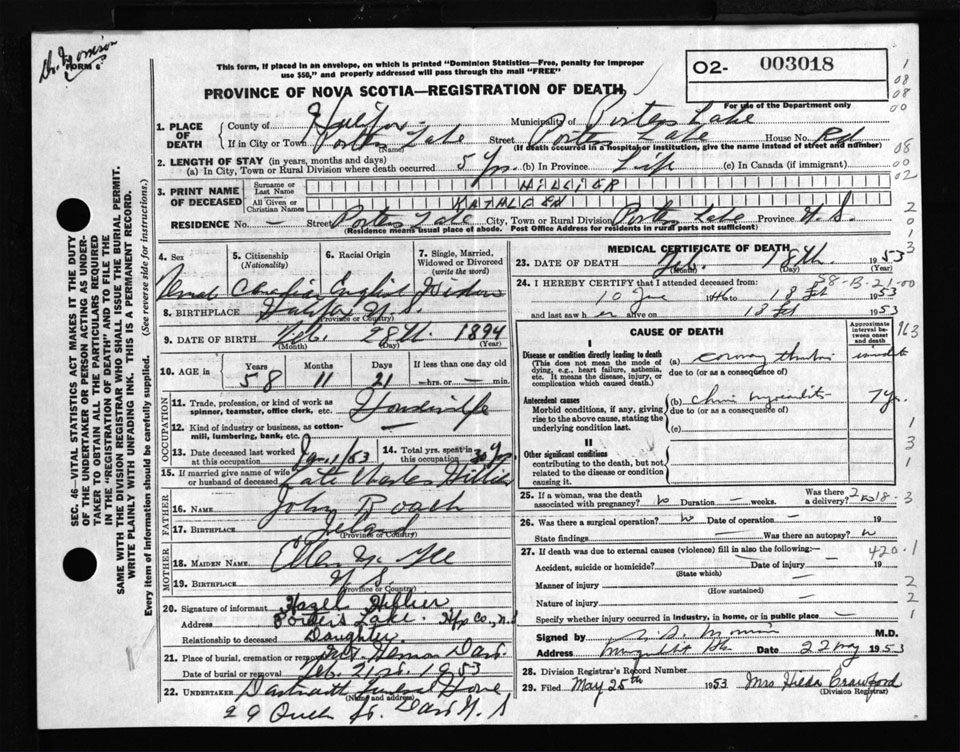 Dr. Morrison
FORM 6
This form, if placed in an envelope, on which is printed "Dominion Statistics—Free, penalty for improper
use $50," and properly addressed will pass through the mail "FREE"
O2- 003018
For use of the Department only
PROVINCE OF NOVA SCOTIA—REGISTRATION OF DEATH
1. PLACE OF DEATH
County of Halifax Municipality of Porters Lake
If in City or Town Porters Lake Street Porters Lake House No. Rd
(Name) (If death occurred in a hospital or institution, give the name instead of street and number)
2. LENGTH OF STAY (in years, months and days)
(a) In City, Town or Rural Division where death occurred 5 Yrs. (b) In Province Life (c) In Canada (if immigrant)
3. PRINT NAME OF DECEASED
Surname or Last Name HILLIER
All Given or Christian Names KATHLEEN
RESIDENCE No. — Street Porters Lake City, Town or Rural Division Porters Lake Province N. S.
(Residence means usual place of abode. Post Office Address for residents in rural parts not sufficient)
4. Sex
5. Citizenship (Nationality) Canadian
6. Racial Origin English
7. Single, Married, Widowed or Divorced (write the word) Widow
8. BIRTHPLACE Halifax N. S.
(Province or Country)
9. DATE OF BIRTH Feb. 28th 1894
(Month) (Day) (Year)
10. AGE in Years 58 Months 11 Days 21 If less than one day old —hrs. or — min.
OCCUPATION
11. Trade, profession, or kind of work as spinner, teamster, office clerk, etc. Housewife
12. Kind of industry or business, as cotton-mill, lumbering, bank, etc. —
13. Date deceased last worked at this occupation Jan 1/53
14. Total yrs. spent in this occupation 30 Yrs.
15. If married give name of wife or husband of deceased Late Charles Hillier
FATHER
16. Name John Roach
17. Birthplace Ireland
(Province or Country)
MOTHER
18. MAIDEN NAME Ellen
19. BIRTHPLACE N. S.
(Province or Country)
20. Signature of informant Hazel Hillier
Address Porters Lake. Hfx Co., N.S
Relationship to deceased Daughter.
21. Place of burial, cremation or removal Mt. Hermon Dart.
Date of burial or removal Feb. 21st. 1953
22. UNDERTAKER Dartmouth Funeral Home
(Name and address)
29 Queen St. Dart N. S
MEDICAL CERTIFICATE OF DEATH
23. DATE OF DEATH Feb. 18th 1953
(Month) (Day)
24. I HEREBY CERTIFY that I attended deceased from:
1946 to 18 Feb 1953
and last saw her alive on 18 Feb 1953
CAUSE OF DEATH
Approximate interval between onset and death
I
Disease or condition directly leading to death
(This does not mean the mode of dying, e.g., heart failure, asthenia, etc. It means the disease, injury, or complication which caused death.)
(a)
due to (or as a consequence of)
Antecedent causes
Morbid conditions, if any, giving rise to the above cause, stating the underlying condition last.
(b) 7 yr.
due to (or as a consequence of)
(c)
II
Other significant conditions
contributing to the death, but not related to the disease or condition causing it.
25. If a woman, was the death associated with pregnancy? No Duration — weeks. Was there a delivery?
26. Was there a surgical operation? No Date of operation — 19
State findings — Was there an autopsy?
27. If death was due to external causes (violence) fill in also the following:—
Accident, suicide or homicide? — Date of injury — 19
(State which)
Manner of injury —
(How sustained)
Nature of injury —
Specify whether injury occurred in industry, in home, or in public place —
Signed by M.D.
Address Date 22 May 1953
28. Division Registrar's Record Number
29. Filed May 25th 1953 Mrs Hilda Crawford
(Division Registrar)
420.1
SEC. 46—VITAL STATISTICS ACT MAKES IT THE DUTY
OF THE UNDERTAKER OR PERSON ACTING AS UNDER-
TAKER TO OBTAIN ALL THE PARTICULARS REQUIRED
IN THE "REGISTRATION OF DEATH" AND TO FILE THE
SAME WITH THE DIVISION REGISTRAR WHO SHALL ISSUE THE BURIAL PERMIT.
WRITE PLAINLY WITH UNFADING INK. THIS IS A PERMANENT RECORD.
Every item of information should be carefully supplied. (See reverse side for instructions.)